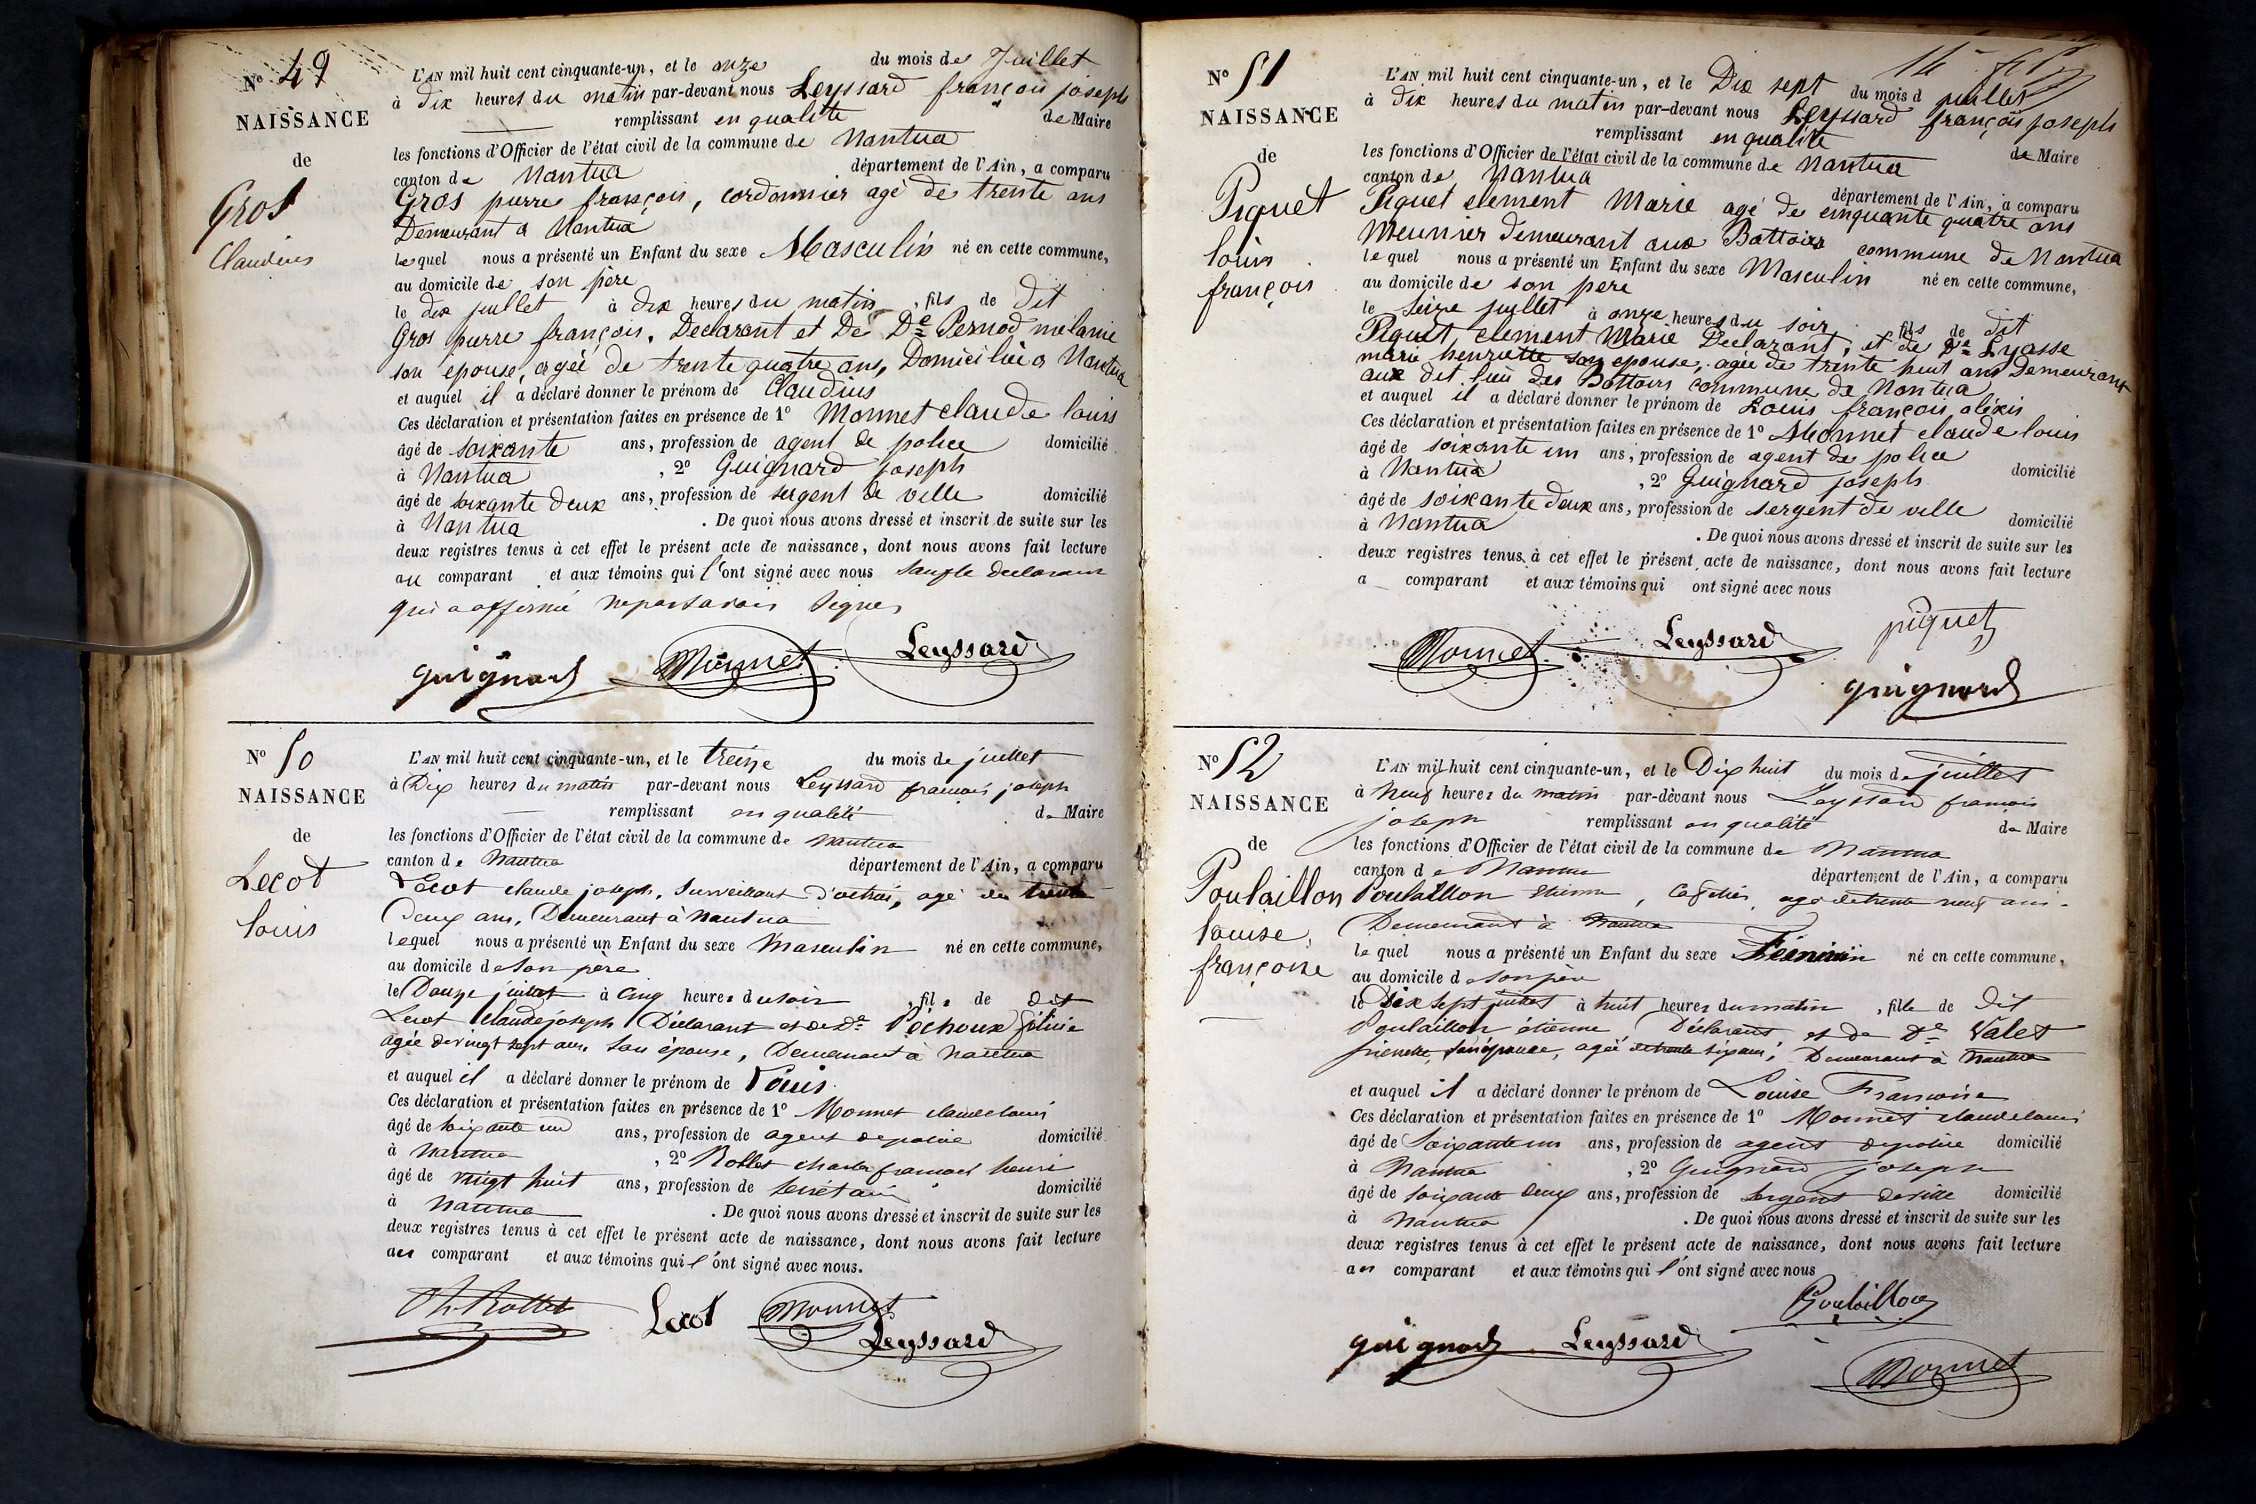 Nº 49
NAISSANCE
de
Gros
Claudius
L'AN mil huit cent cinquante-un, et le onze du mois de Juillet
à dix heures du matin par-devant nous Leyssard françois joseph
remplissant en qualité de Maire
les fonctions d'Officier de l'état civil de la commune de Nantua
canton de Nantua département de l'Ain, a comparu
Gros pierre françois, cordonnier agé de trente ans
Demeurant a Nantua
lequel nous a présenté un Enfant du sexe Masculin né en cette commune,
au domicile de son père
le dix juillet à dix heures du matin, fils de dit
Gros pierre françois, Declarant et De De Pernod mélanie
son epouse, agée de trente quatre ans, Domiciliée a Nantua
et auquel il a déclaré donner le prénom de Claudius
Ces déclaration et présentation faites en présence de 1º Monnet claude louis
âgé de soixante ans, profession de agent de police domicilié
à Nantua, 2º Guignard joseph
âgé de soixante deux ans, profession de sergent de ville domicilié
à Nantua. De quoi nous avons dressé et inscrit de suite sur les
deux registres tenus à cet effet le présent acte de naissance, dont nous avons fait lecture
au comparant et aux témoins qui l'ont signé avec nous sauf le declarant
qui a affirmé ne pas savoir signer
guignard Monnet Leyssard
Nº 50
NAISSANCE
de
Lecot
louis
L'AN mil huit cent cinquante-un, et le treize du mois de juillet
à Dix heures du matin par-devant nous Leyssard françois joseph
remplissant en qualité de Maire
les fonctions d'Officier de l'état civil de la commune de Nantua
canton de Nantua département de l'Ain, a comparu
Lecot claude joseph, surveillant d'octroi, agé de trente
deux ans, Demeurant à Nantua
lequel nous a présenté un Enfant du sexe Masculin né en cette commune,
au domicile de son père
le Douze juillet à cinq heures du soir, fils de dit
Lecot claude joseph Déclarant et de De Péchoux félicie
agée de vingt sept ans, son épouse, Demeurant à Nantua
et auquel il a déclaré donner le prénom de Louis
Ces déclaration et présentation faites en présence de 1º Monnet claude louis
âgé de soixante un ans, profession de agent de police domicilié
à Nantua, 2º Rollet charles françois henri
âgé de vingt huit ans, profession de secrétaire domicilié
à Nantua. De quoi nous avons dressé et inscrit de suite sur les
deux registres tenus à cet effet le présent acte de naissance, dont nous avons fait lecture
au comparant et aux témoins qui l'ont signé avec nous.
Ch Rollet Lecot Monnet
Leyssard
Nº 51
NAISSANCE
de
Piquet
louis
françois
L'AN mil huit cent cinquante-un, et le Dix sept du mois d juillet
à dix heures du matin par-devant nous Leyssard françois joseph
remplissant en qualité de Maire
les fonctions d'Officier de l'état civil de la commune de Nantua
canton de Nantua département de l'Ain, a comparu
Piquet clement Marie agé de cinquante quatre ans
Meunier demeurant aux Battoirs commune de Nantua
lequel nous a présenté un Enfant du sexe Masculin né en cette commune,
au domicile de son pere
le Seize juillet à onze heures du soir, fils de dit
Piquet clement Marie Declarant, et de De Lyasse
marie henriette son epouse, agée de trente huit ans Demeurant
aux dit lieu des Battoirs commune de Nantua
et auquel il a déclaré donner le prénom de Louis françois aléxis
Ces déclaration et présentation faites en présence de 1º Monnet claude louis
âgé de soixante un ans, profession de agent de police
à Nantua, 2º Guignard joseph domicilié
âgé de soixante deux ans, profession de sergent de ville
à Nantua domicilié
. De quoi nous avons dressé et inscrit de suite sur les
deux registres tenus à cet effet le présent acte de naissance, dont nous avons fait lecture
a comparant et aux témoins qui ont signé avec nous
piquet
Monnet Leyssard
guignard
Nº 52
NAISSANCE
de
Poulaillon
louise
françoise
L'AN mil huit cent cinquante-un, et le Dix huit du mois de juillet
à Neuf heures du matin par-devant nous Leyssard françois
joseph remplissant en qualité de Maire
les fonctions d'Officier de l'état civil de la commune de Nantua
canton de Nantua département de l'Ain, a comparu
Poulaillon étienne, cafetier, agé de trente neuf ans.
Demeurant à Nantua
lequel nous a présenté un Enfant du sexe Féminin né en cette commune,
au domicile de son père
le Dix sept juillet à huit heures du matin, fille de dit
Poulaillon étienne Déclarant et de De Valet
pierrette, son épouse, agée de trente six ans, Demeurant à Nantua
et auquel il a déclaré donner le prénom de Louise Françoise
Ces déclaration et présentation faites en présence de 1º Monnet claude louis
âgé de Soixante un ans, profession de agent de police domicilié
à Nantua, 2º Guignard joseph
âgé de soixante deux ans, profession de sergent de ville domicilié
à Nantua. De quoi nous avons dressé et inscrit de suite sur les
deux registres tenus à cet effet le présent acte de naissance, dont nous avons fait lecture
au comparant et aux témoins qui l'ont signé avec nous
Poulaillon
guignard Leyssard
Monnet